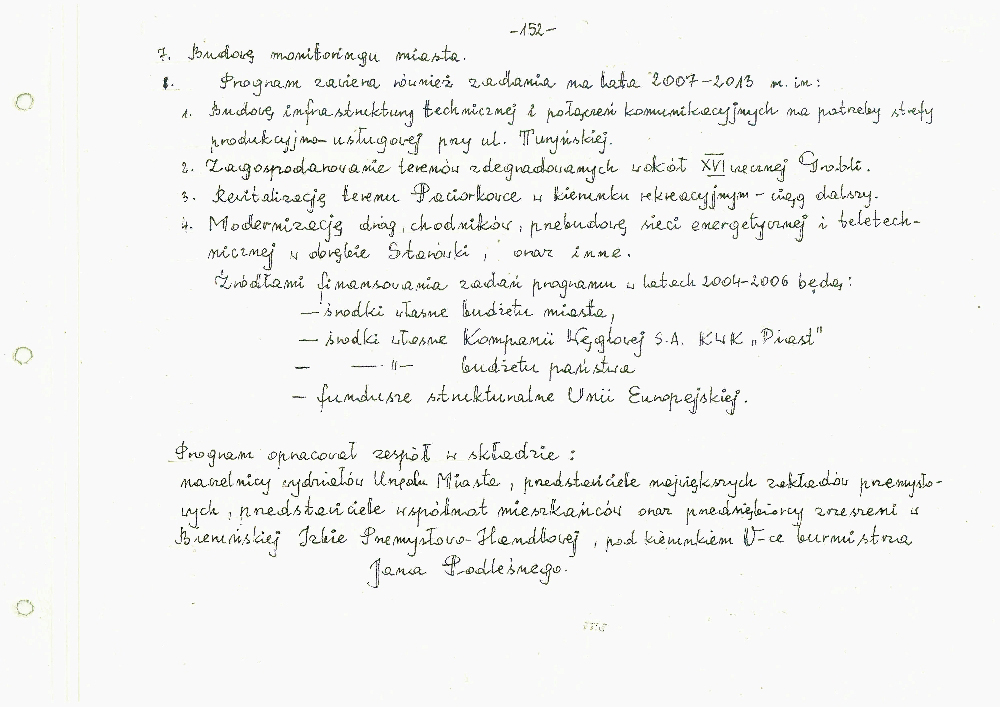 -152-
7. Budowę monitoringu miasta.
8. Program zawiera również zadania na lata 2007-2013 m. in:
1. Budowę infrastruktury technicznej i połączeń komunikacyjnych na potrzeby strefy
produkcyjno-usługowej przy ul. Turyńskiej.
2. Zagospodarowanie terenów zdegradowanych wokół XVI wiecznej Grobli.
3. Rewitalizację terenu Paciorkowce w kierunku rekreacyjnym - ciąg dalszy.
4. Modernizację dróg, chodników, przebudowę sieci energetycznej i teletech-
nicznej w obrębie Starówki, oraz inne.
Źródłami finansowania zadań programu w latach 2004-2006 będą:
- środki własne budżetu miasta,
- środki własne Kompanii Węglowej S.A. KWK „Piast"
- — " — budżetu państwa
- fundusze strukturalne Unii Europejskiej.
Program opracował zespół w składzie:
naczelnicy wydziałów Urzędu Miasta, przedstawiciele największych zakładów przemysło-
wych, przedstawiciele wspólnot mieszkańców oraz przedsiębiorcy zrzeszeni w
Bieruńskiej Izbie Przemysłowo-Handlowej, pod kierunkiem V-ce burmistrza
Jana Podleśnego.